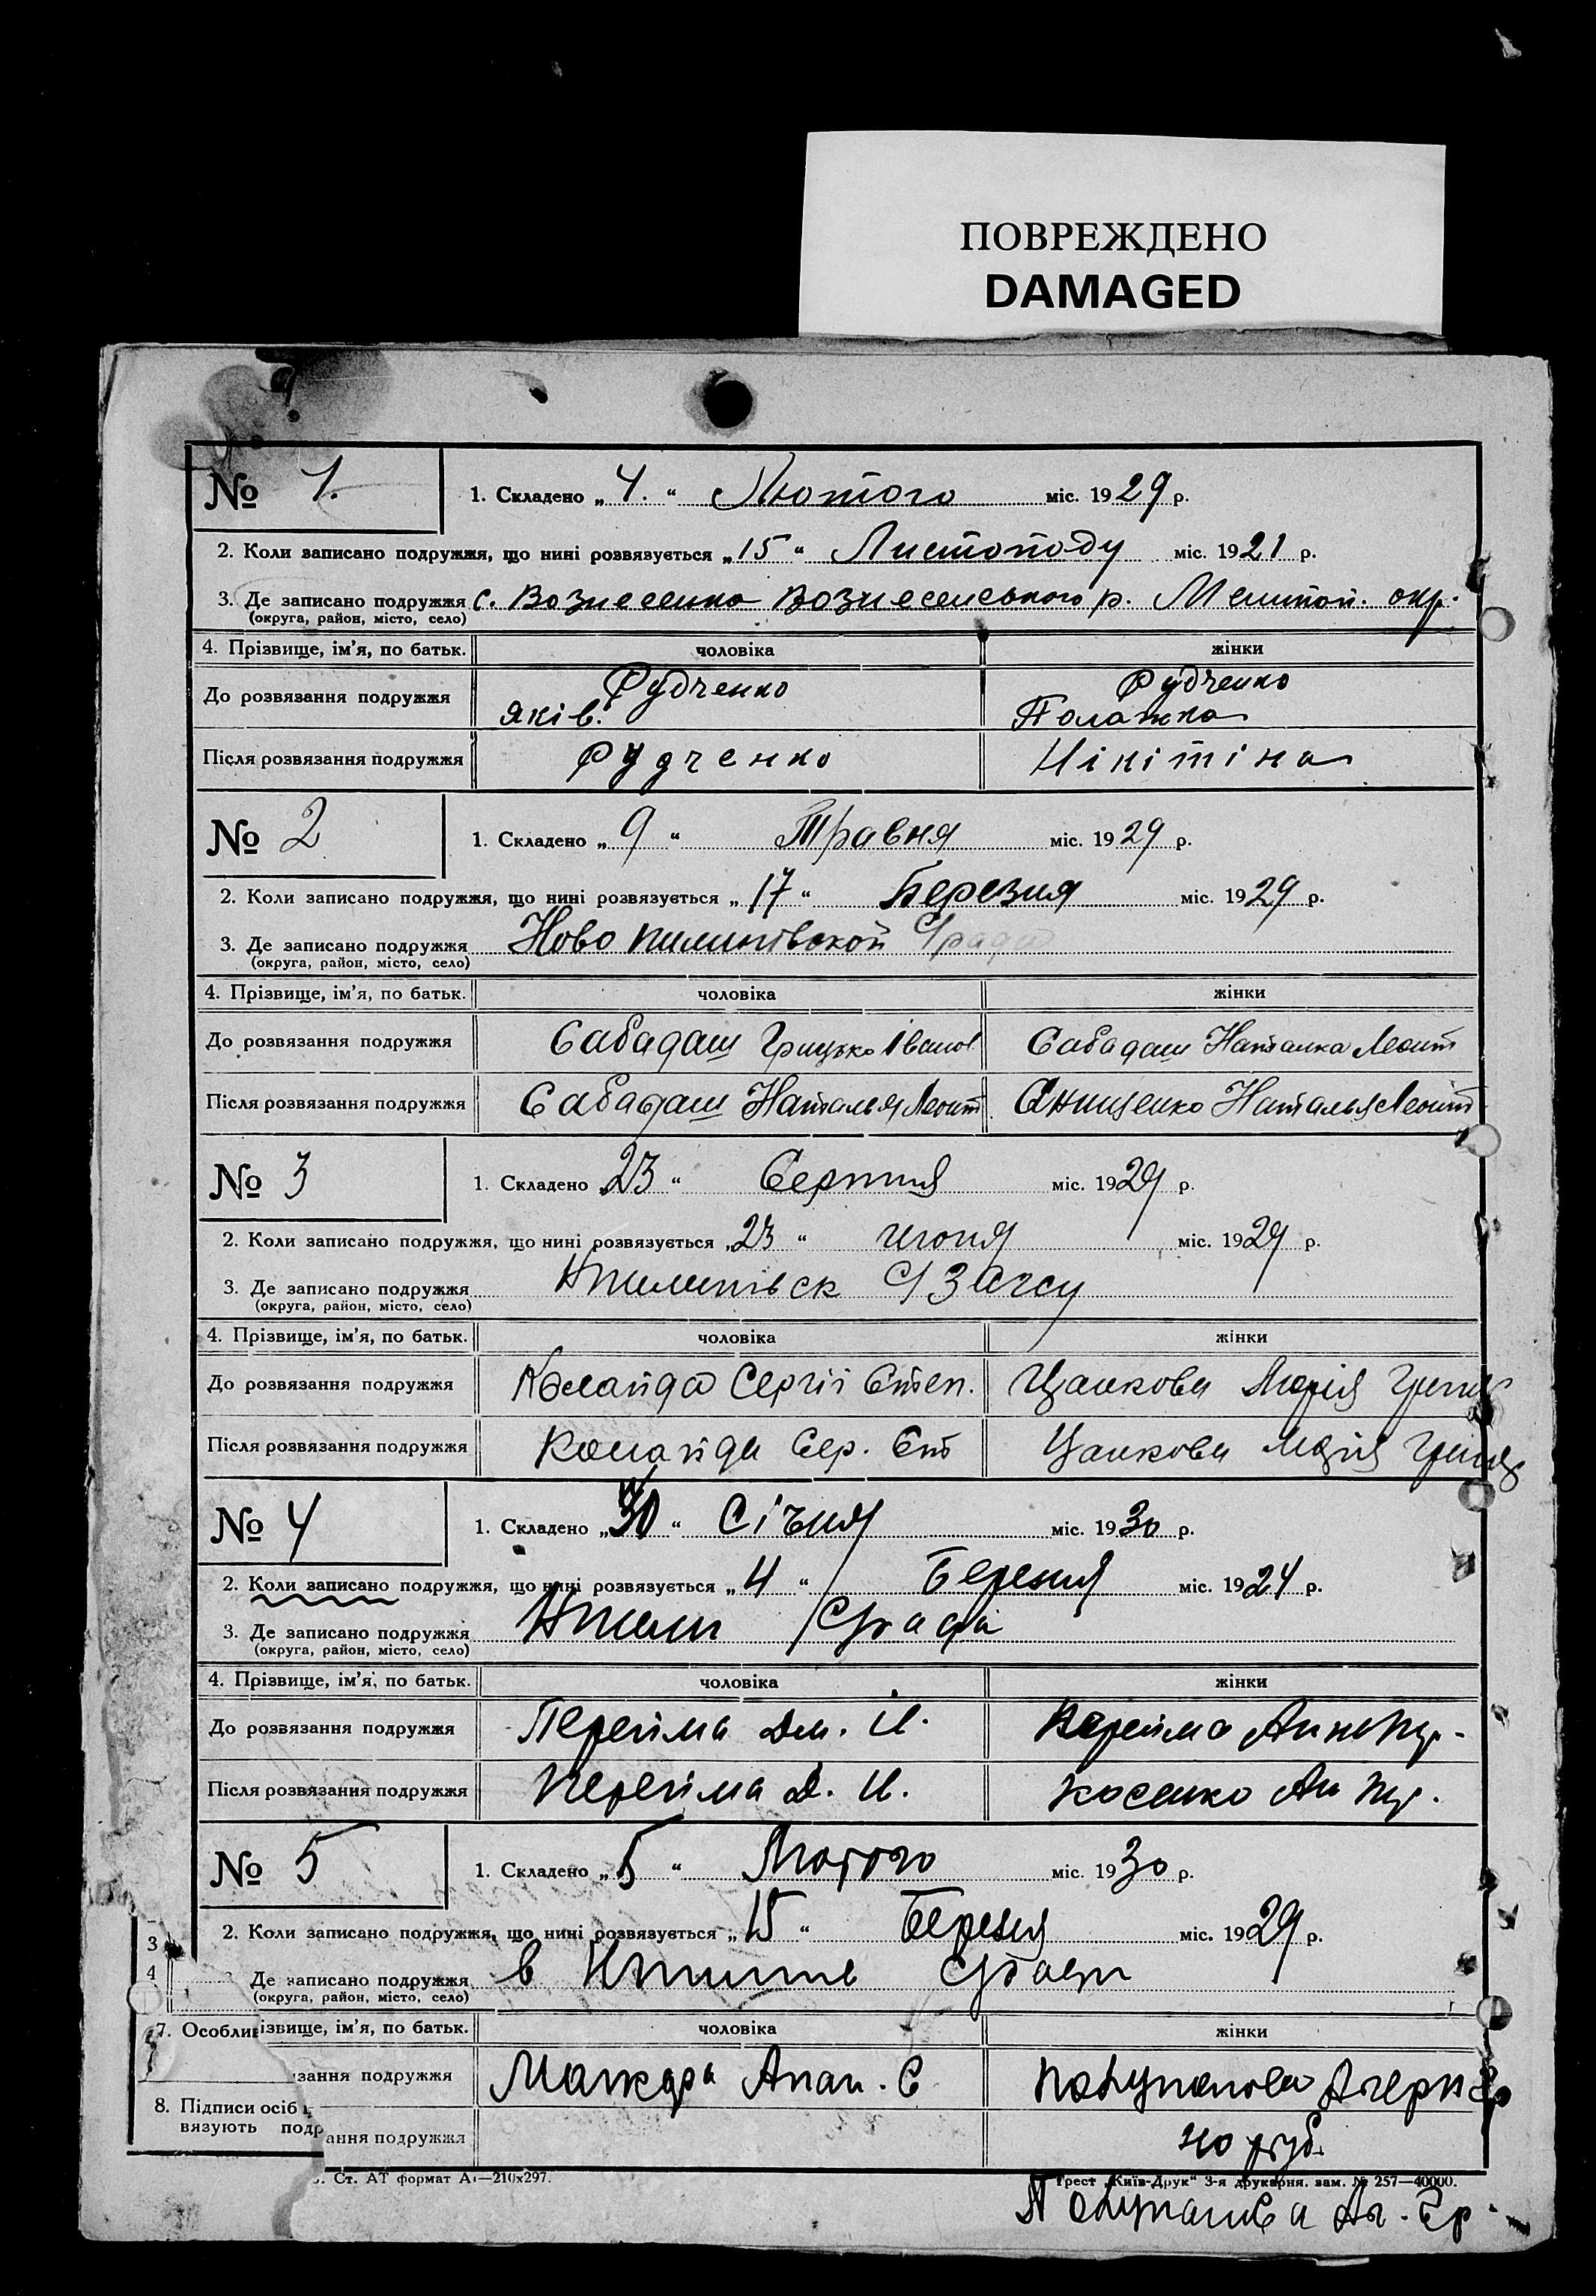 ПОВРЕЖДЕНО
DAMAGED
№ 1.
1. Складено „ 4. “ Лютого міс. 1929 р.
2. Коли записано подружжя, що нині розвязується „ 15 “ Листопаду міс. 1921 р.
3. Де записано подружжя с. Вознесенка Вознесенського р. окр.
(округа, район, місто, село)
4. Прізвище, ім'я, по батьк. чоловіка жінки
До розвязання подружжя Рудченко Яків. Рудченко Палажка
Після розвязання подружжя Рудченко Нікітіна
№ 2
1. Складено „ 9 “ Травня міс. 1929 р.
2. Коли записано подружжя, що нині розвязується „ 17 “ Березня міс. 1929 р.
3. Де записано подружжя Ново пилипівской С/ради
(округа, район, місто, село)
4. Прізвище, ім'я, по батьк. чоловіка жінки
До розвязання подружжя Сабадаш Грицько Іванов Сабадаш Наталка Леонт
Після розвязання подружжя Сабадаш Наталья Леонт Онищенко Наталья Леонт
№ 3
1. Складено „ 23 “ Серпня міс. 1929 р.
2. Коли записано подружжя, що нині розвязується „ 23 “ июня міс. 1929 р.
3. Де записано подружжя Нпилипівск С/ЗАГСу
(округа, район, місто, село)
4. Прізвище, ім'я, по батьк. чоловіка жінки
До розвязання подружжя Сергій Степ. Цанкова Марія Гриц
Після розвязання подружжя Сер. Ст Цанкова Марія Гриц
№ 4
1. Складено „ 30 “ Січня міс. 1930 р.
2. Коли записано подружжя, що нині розвязується „ 4 “ Березня міс. 1924 р.
3. Де записано подружжя Нпилип С/рада
(округа, район, місто, село)
4. Прізвище, ім'я, по батьк. чоловіка жінки
До розвязання подружжя Перейма Дм. И. Перейма
Після розвязання подружжя Перейма Д. И. Косенко
№ 5
1. Складено „ 5 “ Лютого міс. 1930 р.
2. Коли записано подружжя, що нині розвязується „ 15 “ Березня міс. 1929 р.
3
4
Де записано подружжя в С/раді
(округа, район, місто, село)
7. Особлив
ізвище, ім'я, по батьк. чоловіка жінки
зання подружжя Апан. С
8. Підписи осіб
вязують подр
ання подружжя 40 руб.
Ст. АТ формат А₁—210х297.
Трест „Київ-Друк“ 3-я друкарня. зам. № 257—40000.